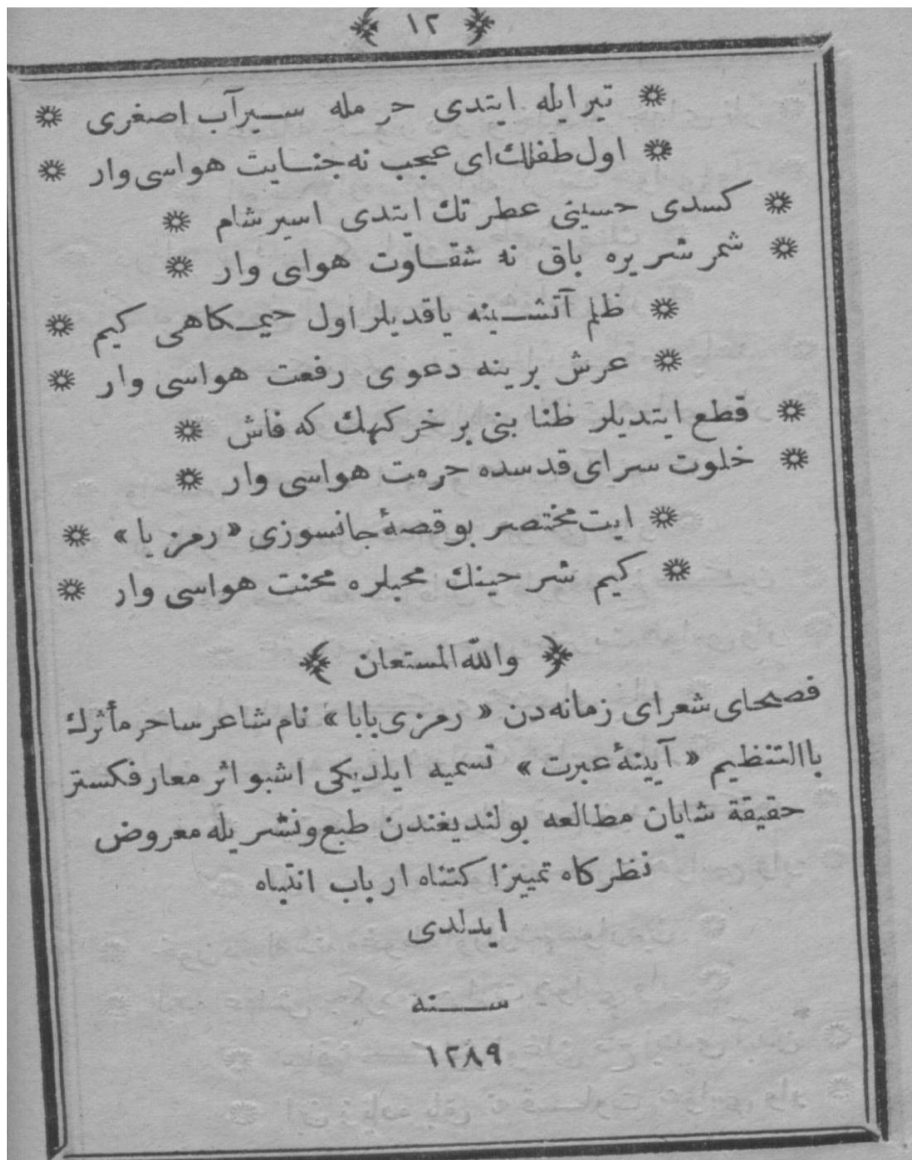 ﴾ ١٢ ﴿
❋ تیر ایله ایتدی حرمله سیرآب اصغری ❋
❋ اول طفلك ای عجب نه جنایت هواسی وار ❋
❋ کسدی حسینی عطرتك ایتدی اسیر شام ❋
❋ شمر شریره باق نه شقاوت هوای وار ❋
❋ ظلم آتشینه یاقدیلر اول خیمکاهی کیم ❋
❋ عرش برینه دعوی رفعت هواسی وار ❋
❋ قطع ایتدیلر طنابنی بر خرکهك که فاش ❋
❋ خلوت سرای قدسده حرمت هواسی وار ❋
❋ ایت مختصر بو قصهٔ جانسوزی « رمزیا » ❋
❋ کیم شر حینك محبلره محنت هواسی وار ❋
﴾ والله المستعان ﴿
فصحای شعرای زمانه دن « رمزی بابا » نام شاعر ساحر مأثرك
باالتنظیم « آیینهٔ عبرت » تسمیه ایلدیکی اشبو اثر معارفکستر
حقیقة شایان مطالعه بولندیغندن طبع ونشریله معروض
نظرکاه تمییز اکتناه ارباب انتباه
ایدلدی
سنه
١٢٨٩